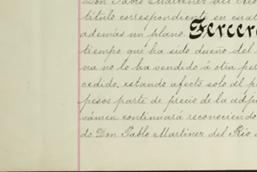 Don Pablo Martinez del Rio
título correspondiente en cuat
además un plano Tercero
tiempo que ha sido dueño del
na no lo ha vendido á otra per
cedido, estando afecto solo al p
pesos parte de precio de la adju
vámen continuará reconociendo
do Don Pablo Martinez del Rio